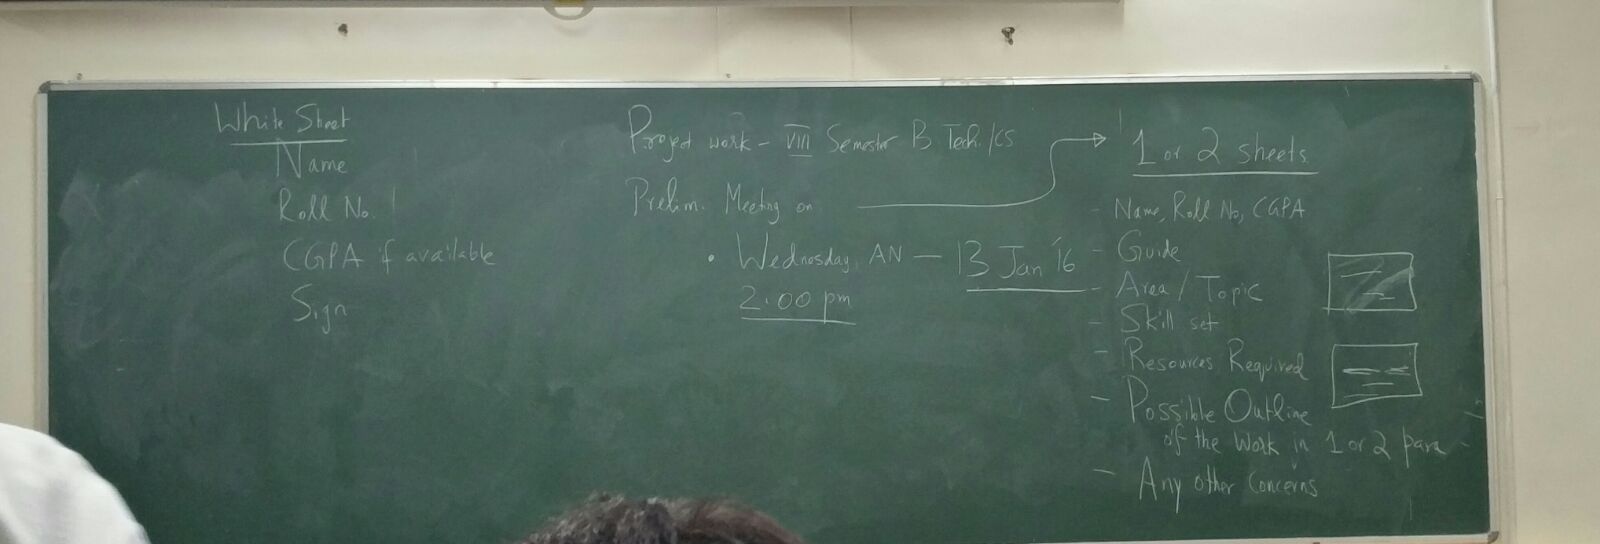 White Sheet
Name
Roll No.
CGPA if available
Sign
Project work - VIII Semester B Tech/CS
Prelim. Meeting on
• Wednesday, AN — 13 Jan '16
2.00 pm
1 or 2 sheets
- Name, Roll No, CGPA
- Guide
- Area / Topic
- Skill set
- Resources Required
- Possible Outline
of the Work in 1 or 2 para
- Any other Concerns